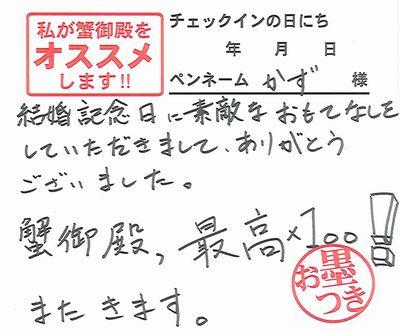 私が蟹御殿を
オススメ
します!!
チェックインの日にち
年 月 日
ペンネーム かず 様
結婚記念日に素敵なおもてなしを
していただきまして、ありがとう
ございました。
蟹御殿, 最高×100!!
またきます。
お墨つき